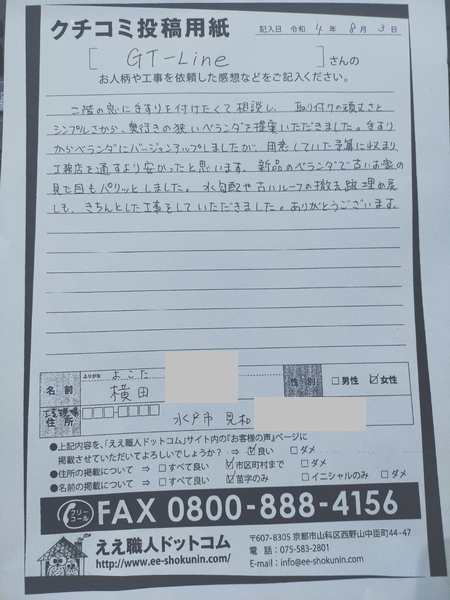 クチコミ投稿用紙
記入日 令和 4 年 8 月 3 日
[ GT-Line ]さんの
お人柄や工事を依頼した感想などをご記入ください。
二階の窓に手すりを付けたくて相談し、取り付けの頑丈さと
シンプルさから、奥行きの狭いベランダを提案いただきました。手すり
からベランダにバージョンアップしましたが、用意していた予算に収まり
工務店を通すより安かったと思います。新品のベランダで古いお家の
見た目もパリッとしました。水勾配や古いルーフの撤去跡埋め戻
しも、きちんとした工事をしていただきました。ありがとうございます。
ふりがな よこた
名前 横田
性別 □男性 ☑女性
工事現場
住所 水戸市 見和
●上記内容を、「ええ職人ドットコム」サイト内の「お客様の声」ページに
掲載させていただいてよろしいでしょうか? ⇒ ☑良い □ダメ
●住所の掲載について ⇒ □すべて良い ☑市区町村まで □ダメ
●名前の掲載について ⇒ □すべて良い ☑苗字のみ □イニシャルのみ □ダメ
フリーコール FAX 0800-888-4156
ええ職人ドットコム
http://www.ee-shokunin.com/
〒607-8305 京都市山科区西野山中臣町44-47
電話:075-583-2801
E-mail:info@ee-shokunin.com